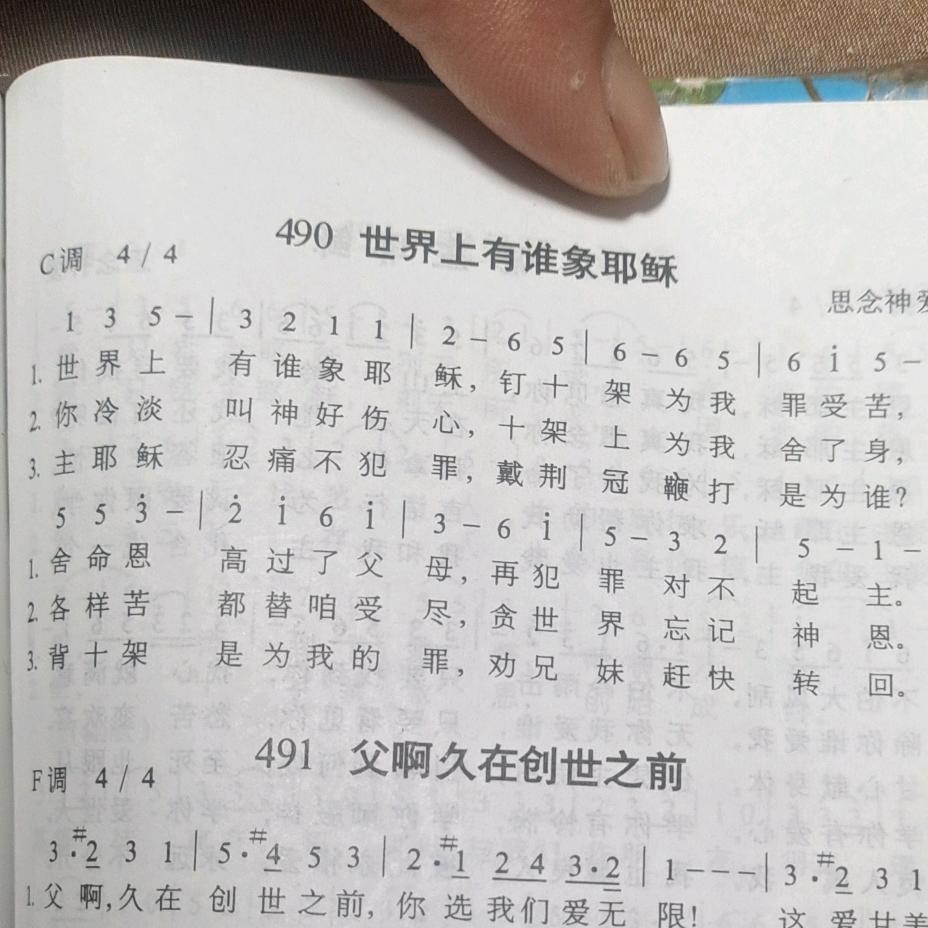 490 世界上有谁象耶稣
C调 4/4
思念神爱
1 3 5 – | 3 2 1 1 | 2 – 6 5 | 6 – 6 5 | 6 i̇ 5 –
1. 世界上 有谁象耶 稣，钉十 架 为我 罪受苦，
2. 你冷淡 叫神好伤 心，十架 上 为我 舍了身，
3. 主耶稣 忍痛不犯 罪，戴荆 冠 鞭打 是为谁？
5 5 3 – | 2̇ i̇ 6 i̇ | 3 – 6 i̇ | 5 – 3 2 | 5 – 1 –
1. 舍命恩 高过了父 母，再犯 罪 对不 起 主。
2. 各样苦 都替咱受 尽，贪世 界 忘记 神 恩。
3. 背十架 是为我的 罪，劝兄 妹 赶快 转 回。
491 父啊久在创世之前
F调 4/4
3·#2 3 1 | 5·#4 5 3 | 2·#1 2 4 3·2 | 1 – – – | 3·#2 3 1
1. 父啊，久在 创世之前，你选我们爱无 限！ 这爱甘美